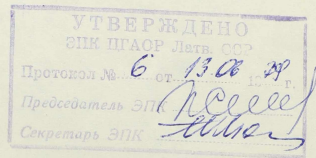 УТВЕРЖДЕНО
ЭПК ЦГАОР Латв. ССР
Протокол № 6 от 13.06 1979 г.
Председатель ЭПК
Секретарь ЭПК